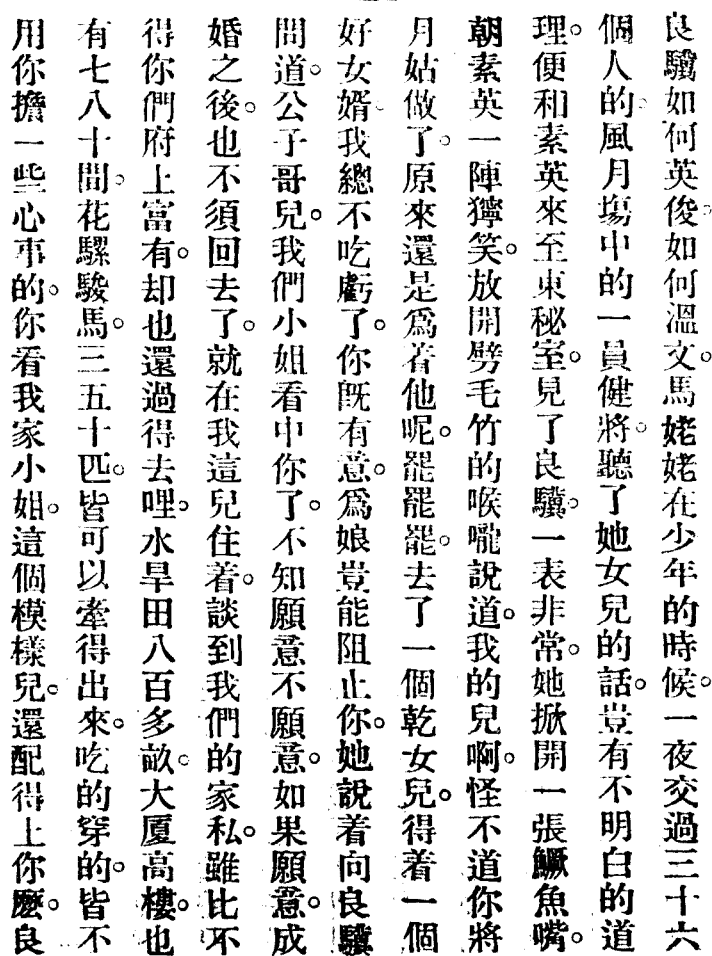 良驥如何英俊。如何溫文。馬姥姥在少年的時候。一夜交過三十六
個人的。風月塲中的一員健將。聽了她女兒的話。豈有不明白的道
理。便和素英來至東秘室。見了良驥。一表非常。她掀開一張鱖魚嘴。
朝素英一陣獰笑。放開劈毛竹的喉嚨說道。我的兒啊。怪不道你將
月姑做了。原來還是爲着他呢。罷罷罷。去了一個乾女兒。得着一個
好女婿。我總不吃虧了。你既有意。爲娘豈能阻止你。她說着向良驥
問道。公子哥兒。我們小姐看中你了。不知願意不願意。如果願意。成
婚之後。也不須回去了。就在我這兒住着。談到我們的家私。雖比不
得你們府上富有。却也還過得去哩。水旱田八百多畝。大厦高樓。也
有七八十間。花騾駿馬。三五十匹。皆可以牽得出來。吃的穿的。皆不
用你擔一些心事的。你看我家小姐。這個模樣兒。還配得上你麼。良